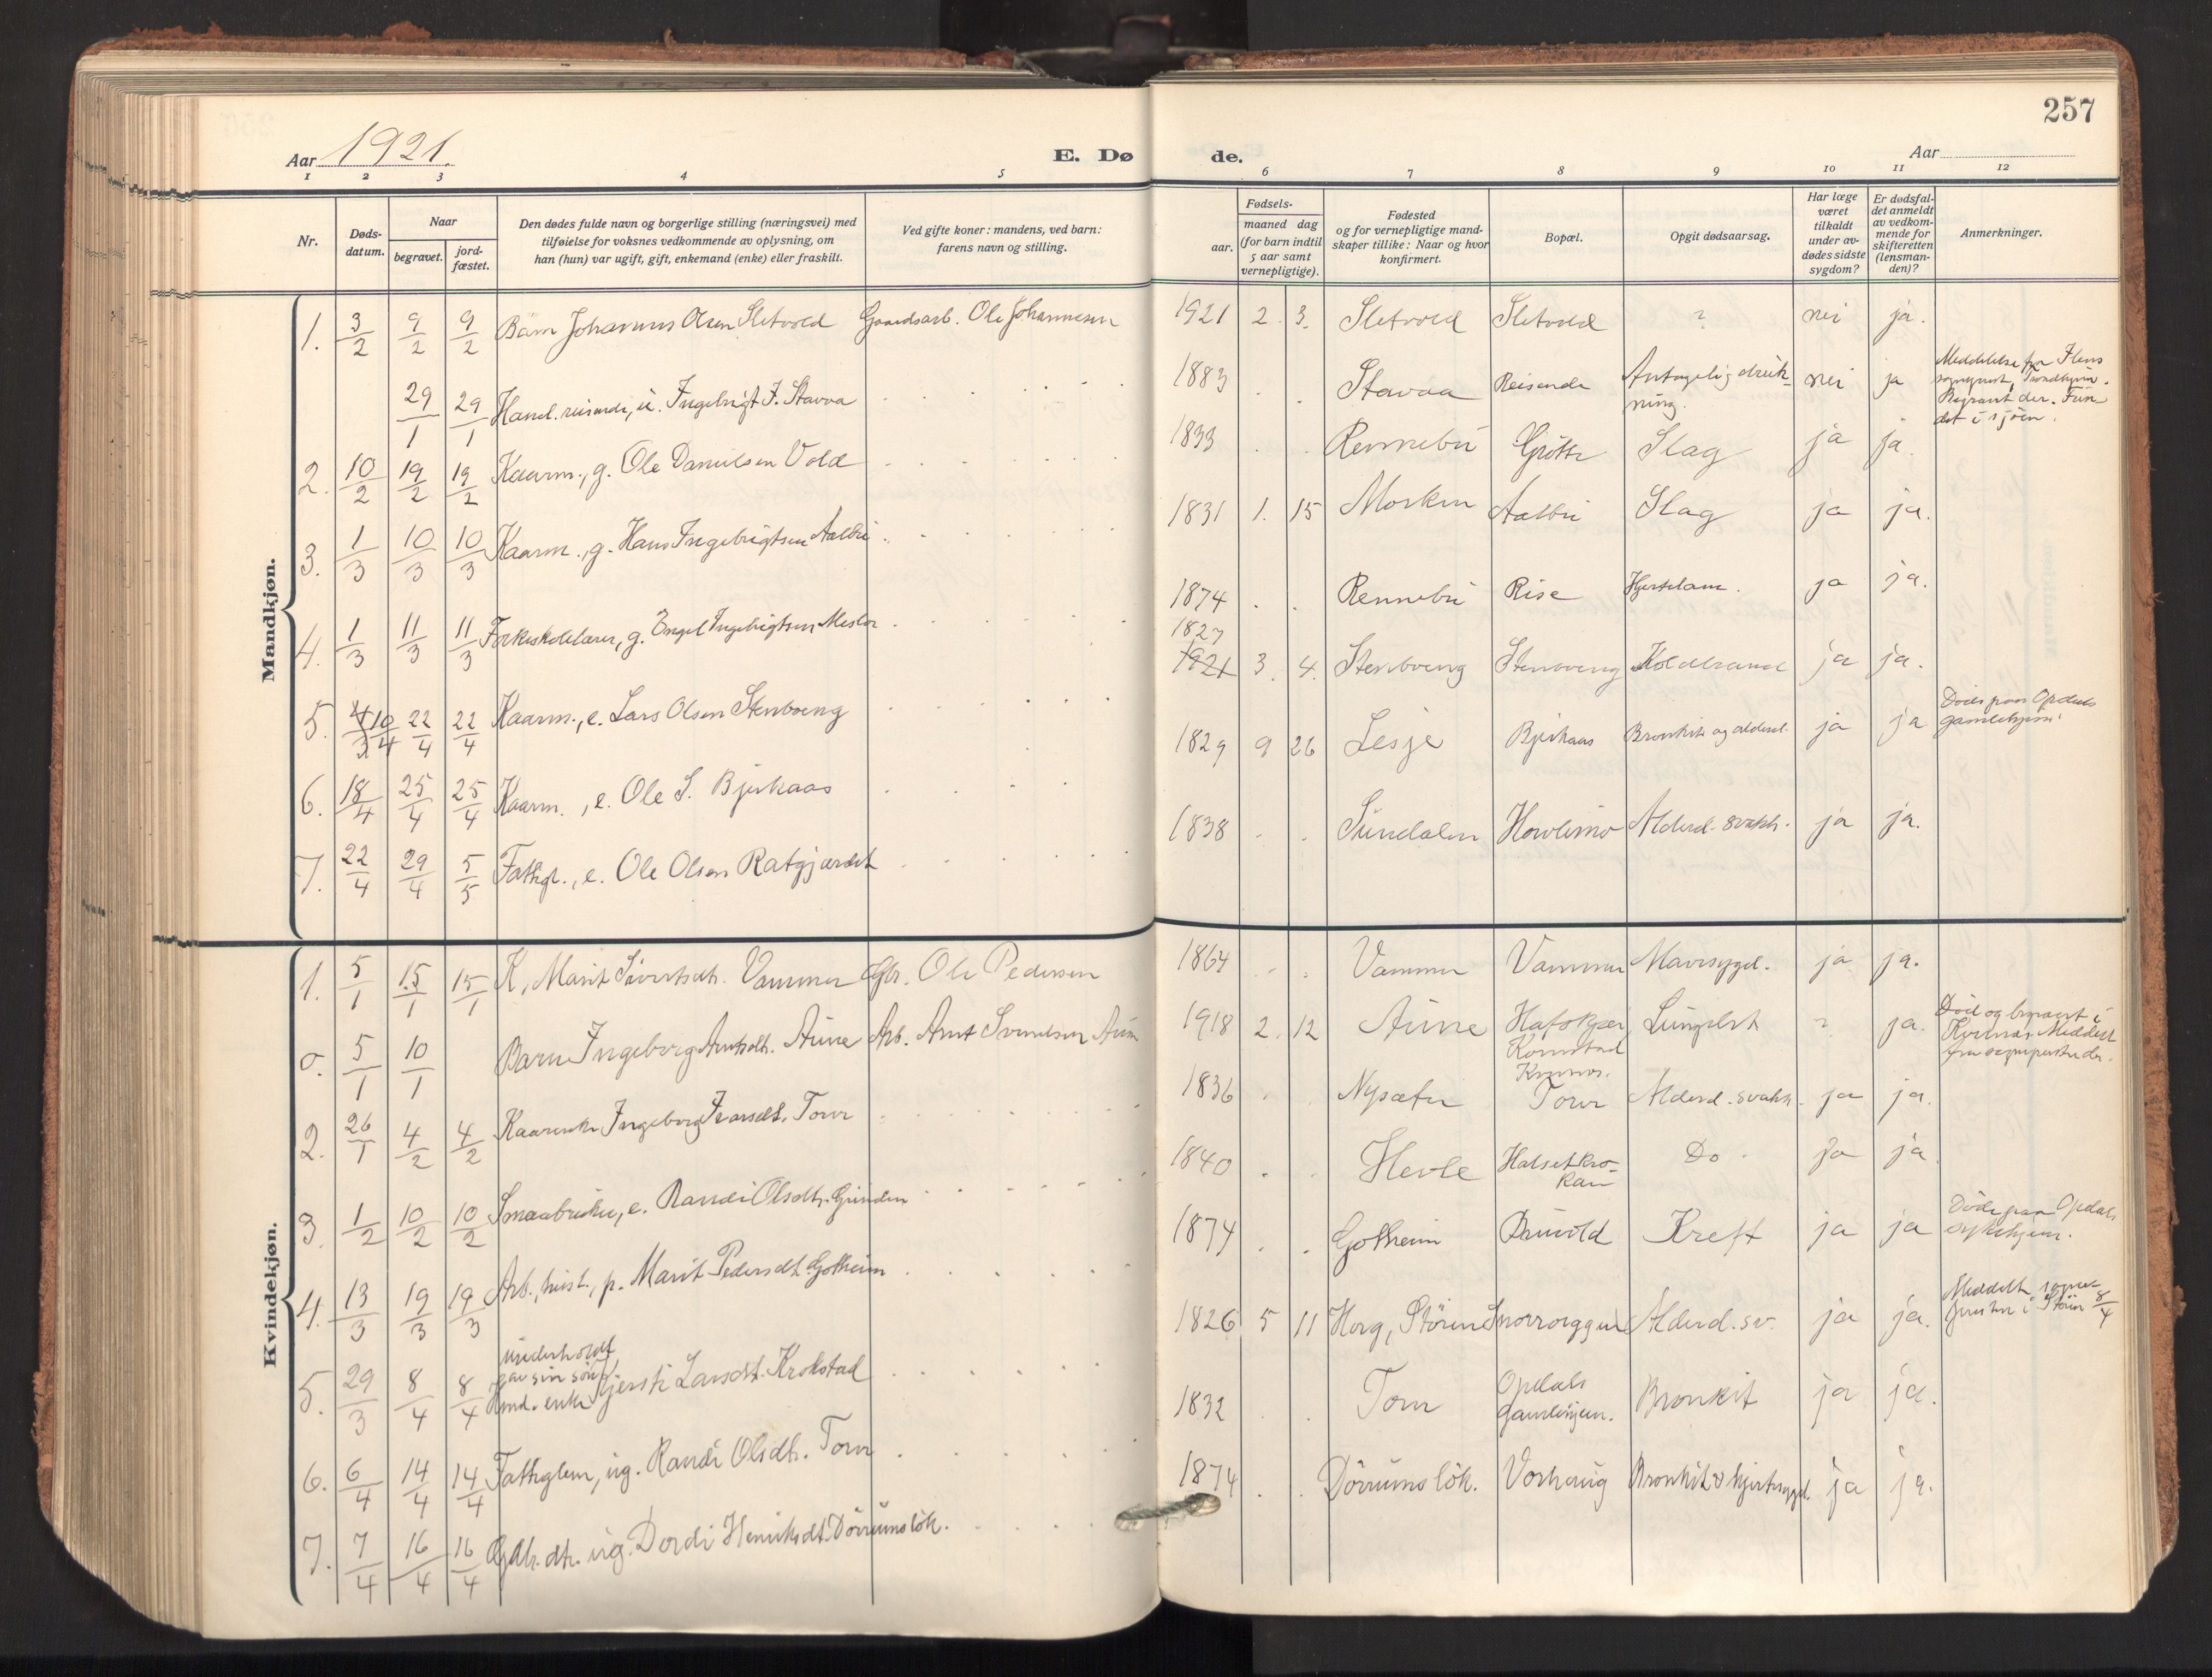 257
Aar 1921.
E. Dø
de.
Aar
1 2 3 4 5 6 7 8 9 10 11 12
Nr.
Døds-
datum.
Naar
begravet.
jord-
fæstet.
Den dødes fulde navn og borgerlige stilling (næringsvei) med
tilføielse for voksnes vedkommende av oplysning, om
han (hun) var ugift, gift, enkemand (enke) eller fraskilt.
Ved gifte koner: mandens, ved barn:
farens navn og stilling.
Fødsels-
aar.
maaned dag
(for barn indtil
5 aar samt
vernepligtige).
Fødested
og for vernepligtige mand-
skaper tillike: Naar og hvor
konfirmert.
Bopæl.
Opgit dødsaarsag.
Har læge
været
tilkaldt
under av-
dødes sidste
sygdom?
Er dødsfal-
det anmeldt
av vedkom-
mende for
skifteretten
(lensman-
den)?
Anmerkninger.
Mandkjøn.
1. 3/2 9/2 9/2 Barn Johannes Olsen Sletvold Gaardsarb. Ole Johannesen 1921 2. 3. Sletvold Sletvold ? nei ja.
29/1 29/1 Hand. reisende, u. Ingebrigt J. Stavaa 1883 Stavaa Reisende Antagelig druk-
ning. nei ja Meddelelse fra
sogneprest, Trondhjem.
Begravet der. Fun-
det i sjøen.
2. 10/2 19/2 19/2 Kaarm., g. Ole Danielsen Vold 1833 Rennebu Slag ja ja.
3. 1/3 10/3 10/3 Kaarm., g. Hans Ingebrigtsen Aalbu 1831 1. 15 Morken Aalbu Slag ja ja.
4. 1/3 11/3 11/3 Folkeskolelærer, g. Engel Ingebrigtsen Meslo 1874 Rennebu Rise Hjertelam. ja ja.
5. 4/3 10/4 22/4 22/4 Kaarm., e. Lars Olsen Stenboeng 1827 1921 3. 4. Stenboeng Stenboeng Koldbrand ja ja.
6. 18/4 25/4 25/4 Kaarm., e. Ole S. Bjerkaas 1829 9 26 Lesje Bjerkaas Bronkit og alderd. ja ja Døde paa Opdals
gamlehjem.
7. 22/4 29/4 5/5 Fattigl., e. Ole Olsen Ratgjærdet 1838 Sundalen Hovlimo Alderd. svakh. ja ja.
Kvindekjøn.
1. 5/1 15/1 15/1 K. Marit Sivertsdt. Vammer Gbr. Ole Pedersen 1864 Vammer Vammer Mavesygd. ja ja.
0. 5/1 10/1 Barn Ingeborg Arntsdt. Aune Arb. Arnt Svendsen Aune 1918 2. 12 Aune
Kornstad
Kvernes. Lungebet ? ja. Død og begravet i
Kvernes. Meddelt
fra sogneprest der.
2. 26/1 4/2 4/2 Kaarenke Ingeborg Ivarsdt. Torve 1836 Nysæter Torve Alderd. svakh. ja ja.
3. 1/2 10/2 10/2 Smaabruker, e. Randi Olsdt. Grinden 1840 Hevle Halsetkro-
ken Do ja ja.
4. 13/3 19/3 19/3 Arb., hust., p. Marit Pedersdt. Gotheim 1874 Gotheim Kreft ja ja Døde paa Opdals
sykehjem.
5. 29/3 8/4 8/4 underholdt
av sin søn,
Gmd. enke Gjersti Larsdt. Krokstad 1826 5 11 Horg, Støren Snoeveggen Alderd. sv. ja ja. Meddelt sogne-
presten i Støren 8/4
6. 6/4 14/4 14/4 Fattiglem, ug. Randi Olsdt. Torve 1832 Torve Opdals
Gamlehjem. Bronkit ja ja.
7. 7/4 16/4 16/4 Gbr. dt. ug. Dordi Henriksdt. Dørrumsløk. 1874 Dørrumsløk. Vorhaug Bronkit & hjertesygd. ja ja.